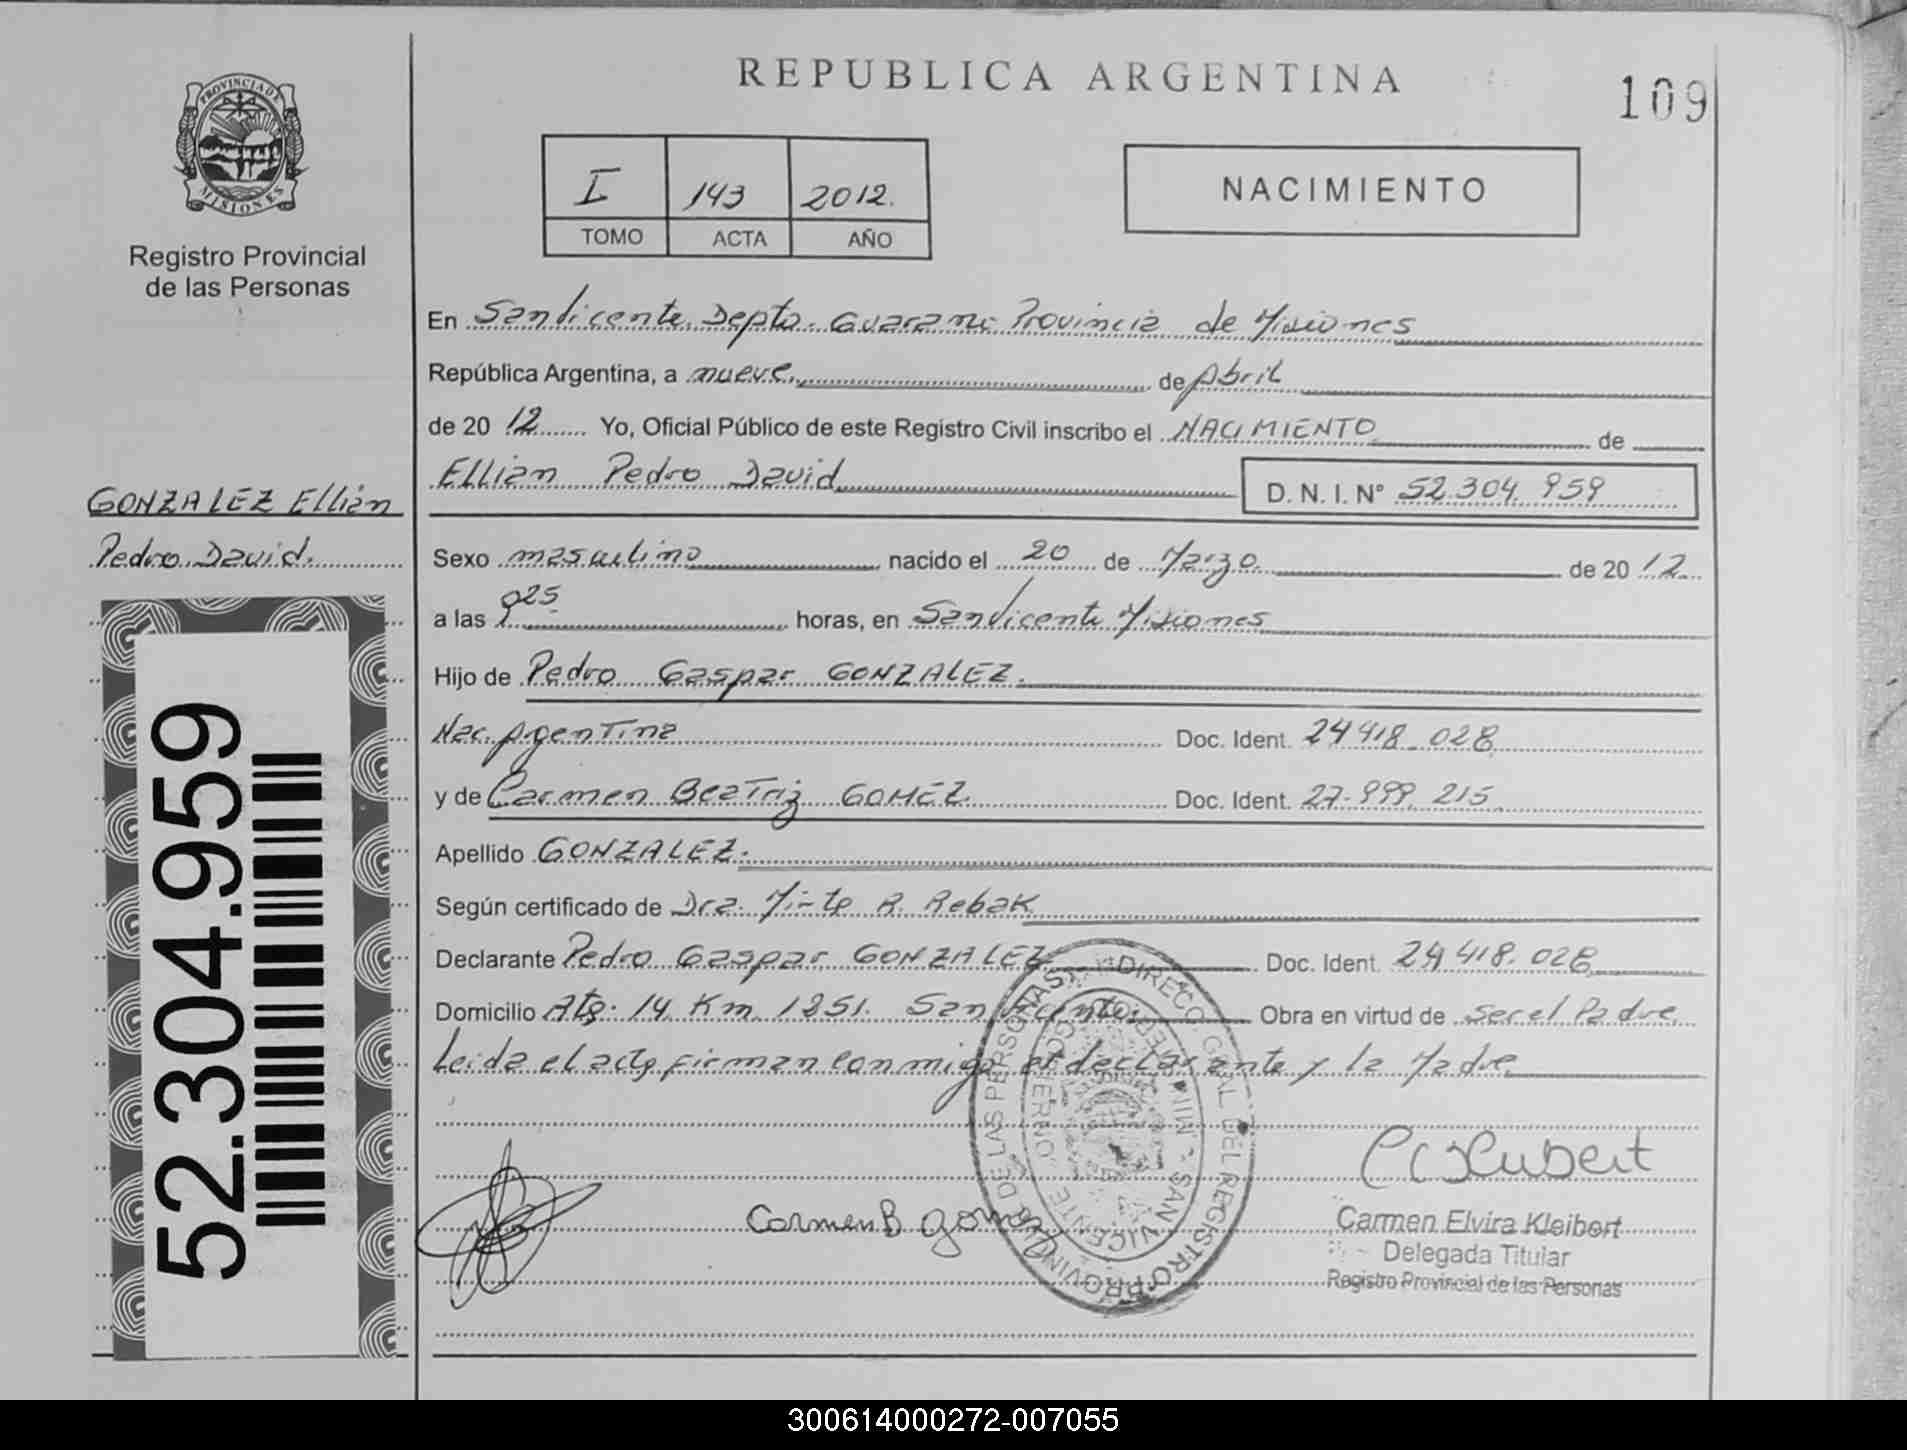 PROVINCIA DE
MISIONES
Registro Provincial
de las Personas
REPUBLICA ARGENTINA
109
I 143 2012.
TOMO ACTA AÑO
NACIMIENTO
En San Vicente, Depto. Guarani Provincia de Misiones
República Argentina, a nueve de Abril
de 20 12 Yo, Oficial Público de este Registro Civil inscribo el NACIMIENTO de
Ellian Pedro David D. N. I. N° 52.304.959
GONZALEZ Ellian
Pedro David.
Sexo masculino nacido el 20 de Marzo de 20 12
a las 9 25 horas, en San Vicente Misiones
Hijo de Pedro Gaspar GONZALEZ.
Nac. Argentina Doc. Ident. 24 418.028
y de Carmen Beatriz GOMEZ. Doc. Ident. 27.999.215
Apellido GONZALEZ.
Según certificado de Dra. Mirta R. Rebak
Declarante Pedro Gaspar GONZALEZ Doc. Ident. 24 418.028
Domicilio Km 1251. San Vicente. Obra en virtud de ser el Padre
Leida el acta firman conmigo el declarante y la Madre
52.304.959
Carmen B gomez
DIRECC. GRAL. DEL REGISTRO PROVINCIAL DE LAS PERSONAS
SAN VICENTE
Carmen Elvira Kleibert
Delegada Titular
Registro Provincial de las Personas
300614000272-007055